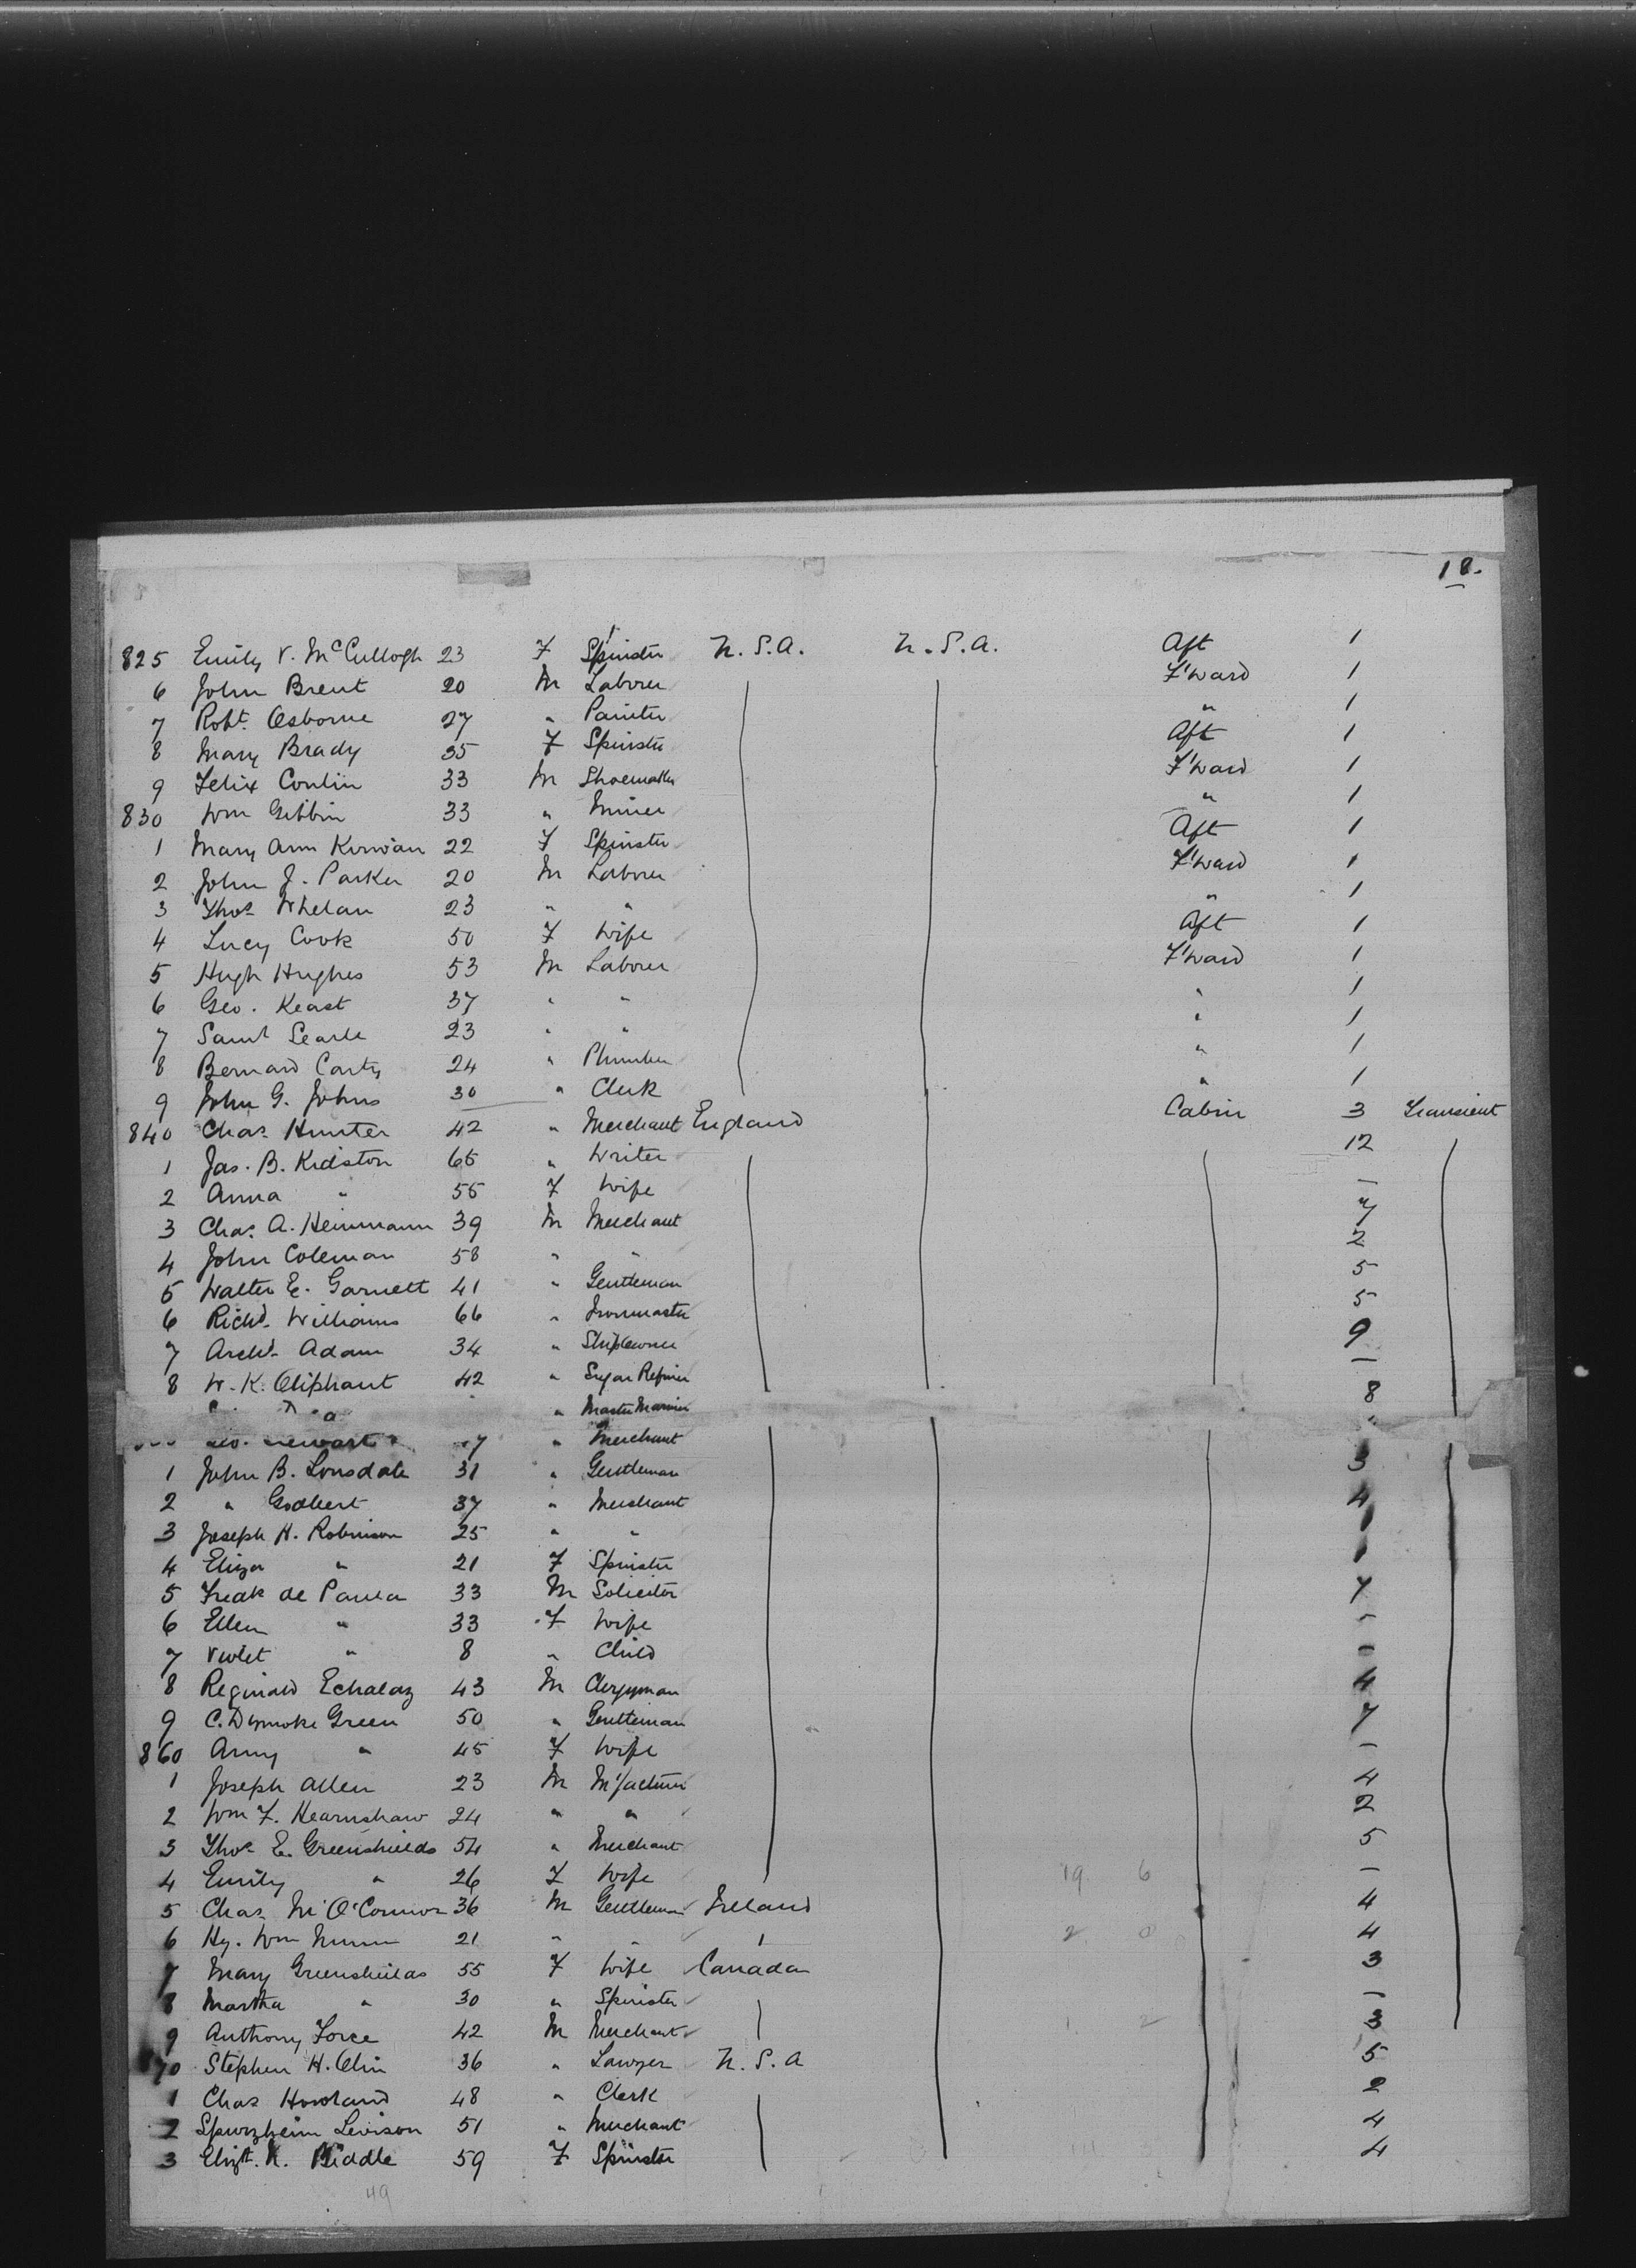 18.
825 Emily V. McCullogh 23 F Spinster U.S.A. U.S.A. Aft 1
6 John Brent 20 M Laborer F'ward 1
7 Robt. Osborne 27 " Painter " 1
8 Mary Brady 35 F Spinster Aft 1
9 Felix Conlin 33 M Shoemaker F'ward 1
830 Wm Gibbin 33 " Miner " 1
1 Mary Ann Kirwan 22 F Spinster Aft 1
2 John J. Parker 20 M Laborer F'ward 1
3 Thos Whelan 23 " " " 1
4 Lucy Cook 50 F Wife Aft 1
5 Hugh Hughes 53 M Laborer F'ward 1
6 Geo. Keast 37 " " " 1
7 Saml Searle 23 " " " 1
8 Bernard Carty 24 " Plumber " 1
9 John G. Johns 30 " Clerk " 1
840 Chas Hunter 42 " Merchant England Cabin 3 Transient
1 Jas. B. Kidston 65 " Writer 12
2 Anna " 55 F Wife —
3 Chas. A. Heinmann 39 M Merchant 7
4 John Coleman 58 " " 2
5 Walter E. Garnett 41 " Gentleman 5
6 Richd. Williams 66 " Ironmaster 5
7 Archd. Adam 34 " Shipowner 9
8 W. K. Oliphant 42 " Sugar Refiner —
" Master Mariner 8
7 " Merchant "
1 John B. Lonsdale 31 " Gentleman 3
2 " Godbert 37 " Merchant 4
3 Joseph H. Robinson 25 " " 1
4 Eliza " 21 F Spinster 1
5 Fredk de Paula 33 M Solicitor 7
6 Ellen " 33 F Wife —
7 Violet " 8 " Child —
8 Reginald Echalaz 43 M Clergyman 4
9 C. Dymoke Green 50 " Gentleman 7
860 Amy " 45 F Wife —
1 Joseph Allen 23 M M'facturer 4
2 Wm F. Hearnshaw 24 " " 2
3 Thos E. Greenshields 54 " Merchant 5
4 Emily " 26 F Wife 19 6 —
5 Chas. M O'Connor 36 M Gentleman Ireland 4
6 Hy. Wm Nunn 21 " " 2 0 4
7 Mary Greenshields 55 F Wife Canada 3
8 Martha " 30 " Spinster —
9 Anthony Force 42 M Merchant 1 2 3
870 Stephen H. Olin 36 " Lawyer U.S.A 5
1 Chas Howland 48 " Clerk 2
2 Spurzheim Levison 51 " Merchant 4
3 Elizth. N. Biddle 59 F Spinster 4
49